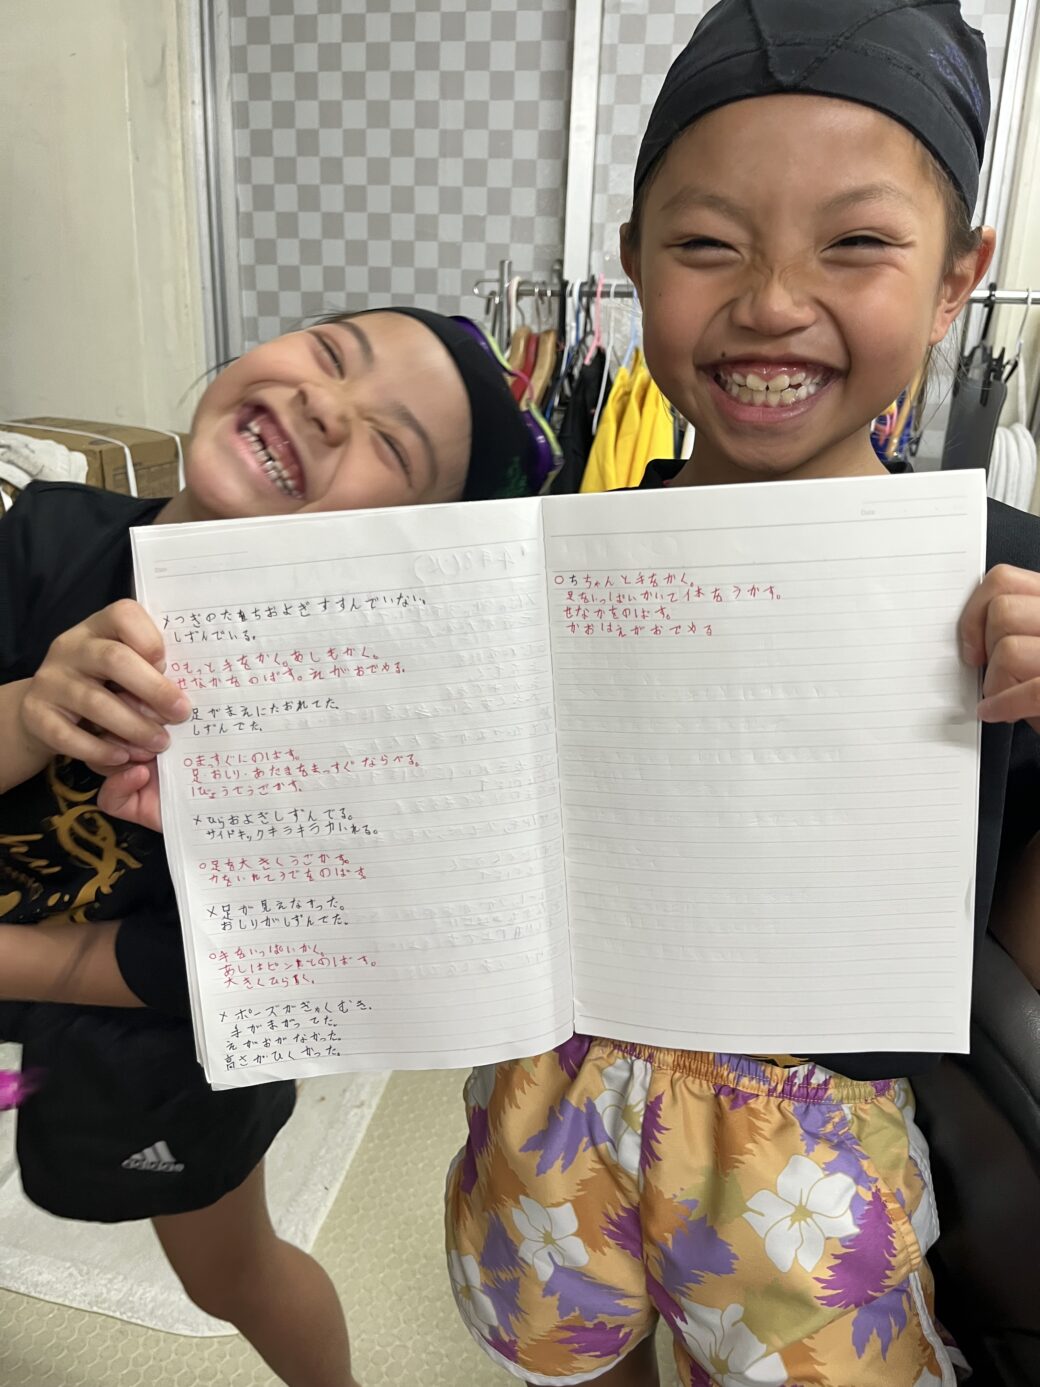 Date
×つぎのたちおよぎすすんでいない。
しずんでいる。
○もっと手をかく。あしもかく。
せなかをのばす。えがおでやる。
足がまえにたおれてた。
しずんでた。
○まっすぐにのばす。
足・おしり・あたまをまっすぐならべる。
1びょうでうごかす。
×ひらおよぎしずんでる。
サイドキックキラキラ力いれる。
○足を大きくうごかす。
力をいれてうでをのばす
×足が見えなかった。
おしりがしずんでた。
○手をいっぱいかく。
あしはピンとのばす。
大きくひらく。
×ポーズがぎゃくむき。
手がまがってた。
えがおがなかった。
高さがひくかった。
Date
○ちゃんと手をかく。
足をいっぱいかいて体をうかす。
せなかをのばす。
かおはえがおでやる
adidas